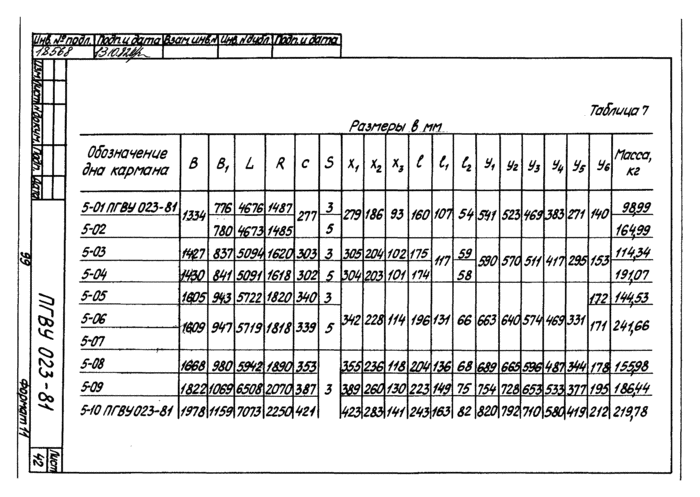 Инв. № подл. Подп. и дата Взам. инв. № Инв. № дубл. Подп. и дата
18568
Таблица 7
Размеры в мм
Обозначение дна кармана B B₁ L R c S x₁ x₂ x₃ l l₁ l₂ y₁ y₂ y₃ y₄ y₅ y₆ Масса, кг
5-01 ПГВУ 023-81 1334 776 4676 1487 277 3 279 186 93 160 107 54 541 523 469 383 271 140 98,99
5-02 780 4673 1485 5 164,99
5-03 1427 837 5094 1620 303 3 305 204 102 175 117 59 590 570 511 417 295 153 114,34
5-04 1430 841 5091 1618 302 5 304 203 101 174 58 191,07
5-05 1605 943 5722 1820 340 3 342 228 114 196 131 66 663 640 574 469 331 172 144,53
5-06 1609 947 5719 1818 339 5 171 241,66
5-07
5-08 1668 980 5942 1890 353 3 355 236 118 204 136 68 689 665 596 487 344 178 155,98
5-09 1822 1069 6508 2070 387 389 260 130 223 149 75 754 728 653 533 377 195 186,44
5-10 ПГВУ 023-81 1978 1159 7073 2250 421 423 283 141 243 163 82 820 792 710 580 419 212 219,78
Изм Лист № докум. Подп. Дата
ПГВУ 023-81
Лист
42
99
Формат 11